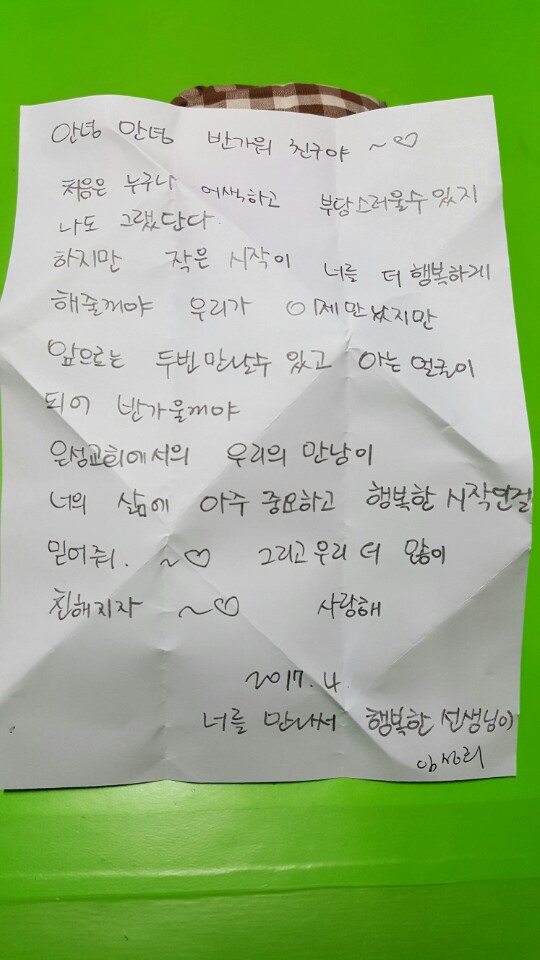 안녕 안녕 반가워 친구야 ~♡
처음은 누구나 어색하고 부담스러울수 있지
나도 그랬단다.
하지만 작은 시작이 너를 더 행복하게
해줄꺼야 우리가 이제 만났지만
앞으로는 두번 만날수 있고 아는 얼굴이
되어 반가울꺼야
은성교회에서의 우리의 만남이
너의 삶에 아주 중요하고 행복한 시작연걸
믿어줘. ~♡ 그리고 우리 더 많이
친해지자 ~♡ 사랑해
2017. 4.
너를 만나서 행복한 선생님이